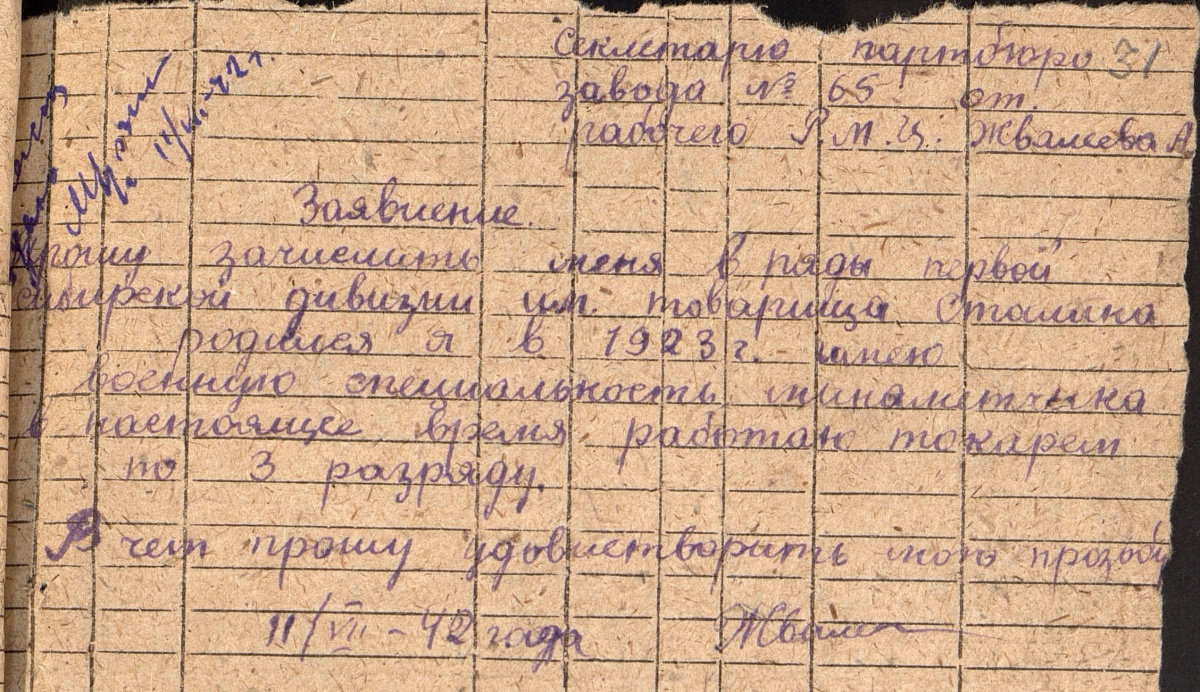 секлетарю партбюро 31
завода № 65 от.
рабочего Р.М.Ц. Жвалева А.
11/VII-42 г.
Заявление.
прошу зачислить меня в ряды первой
сибирской дивизии им. товарища Сталина
родился я в 1923 г. имею
военную специальность минаметчика
в настоящее время работаю токарем
по 3 разряду.
В чем прошу удовлетварить мою прозьбу
11/VII-42 года Жвалев